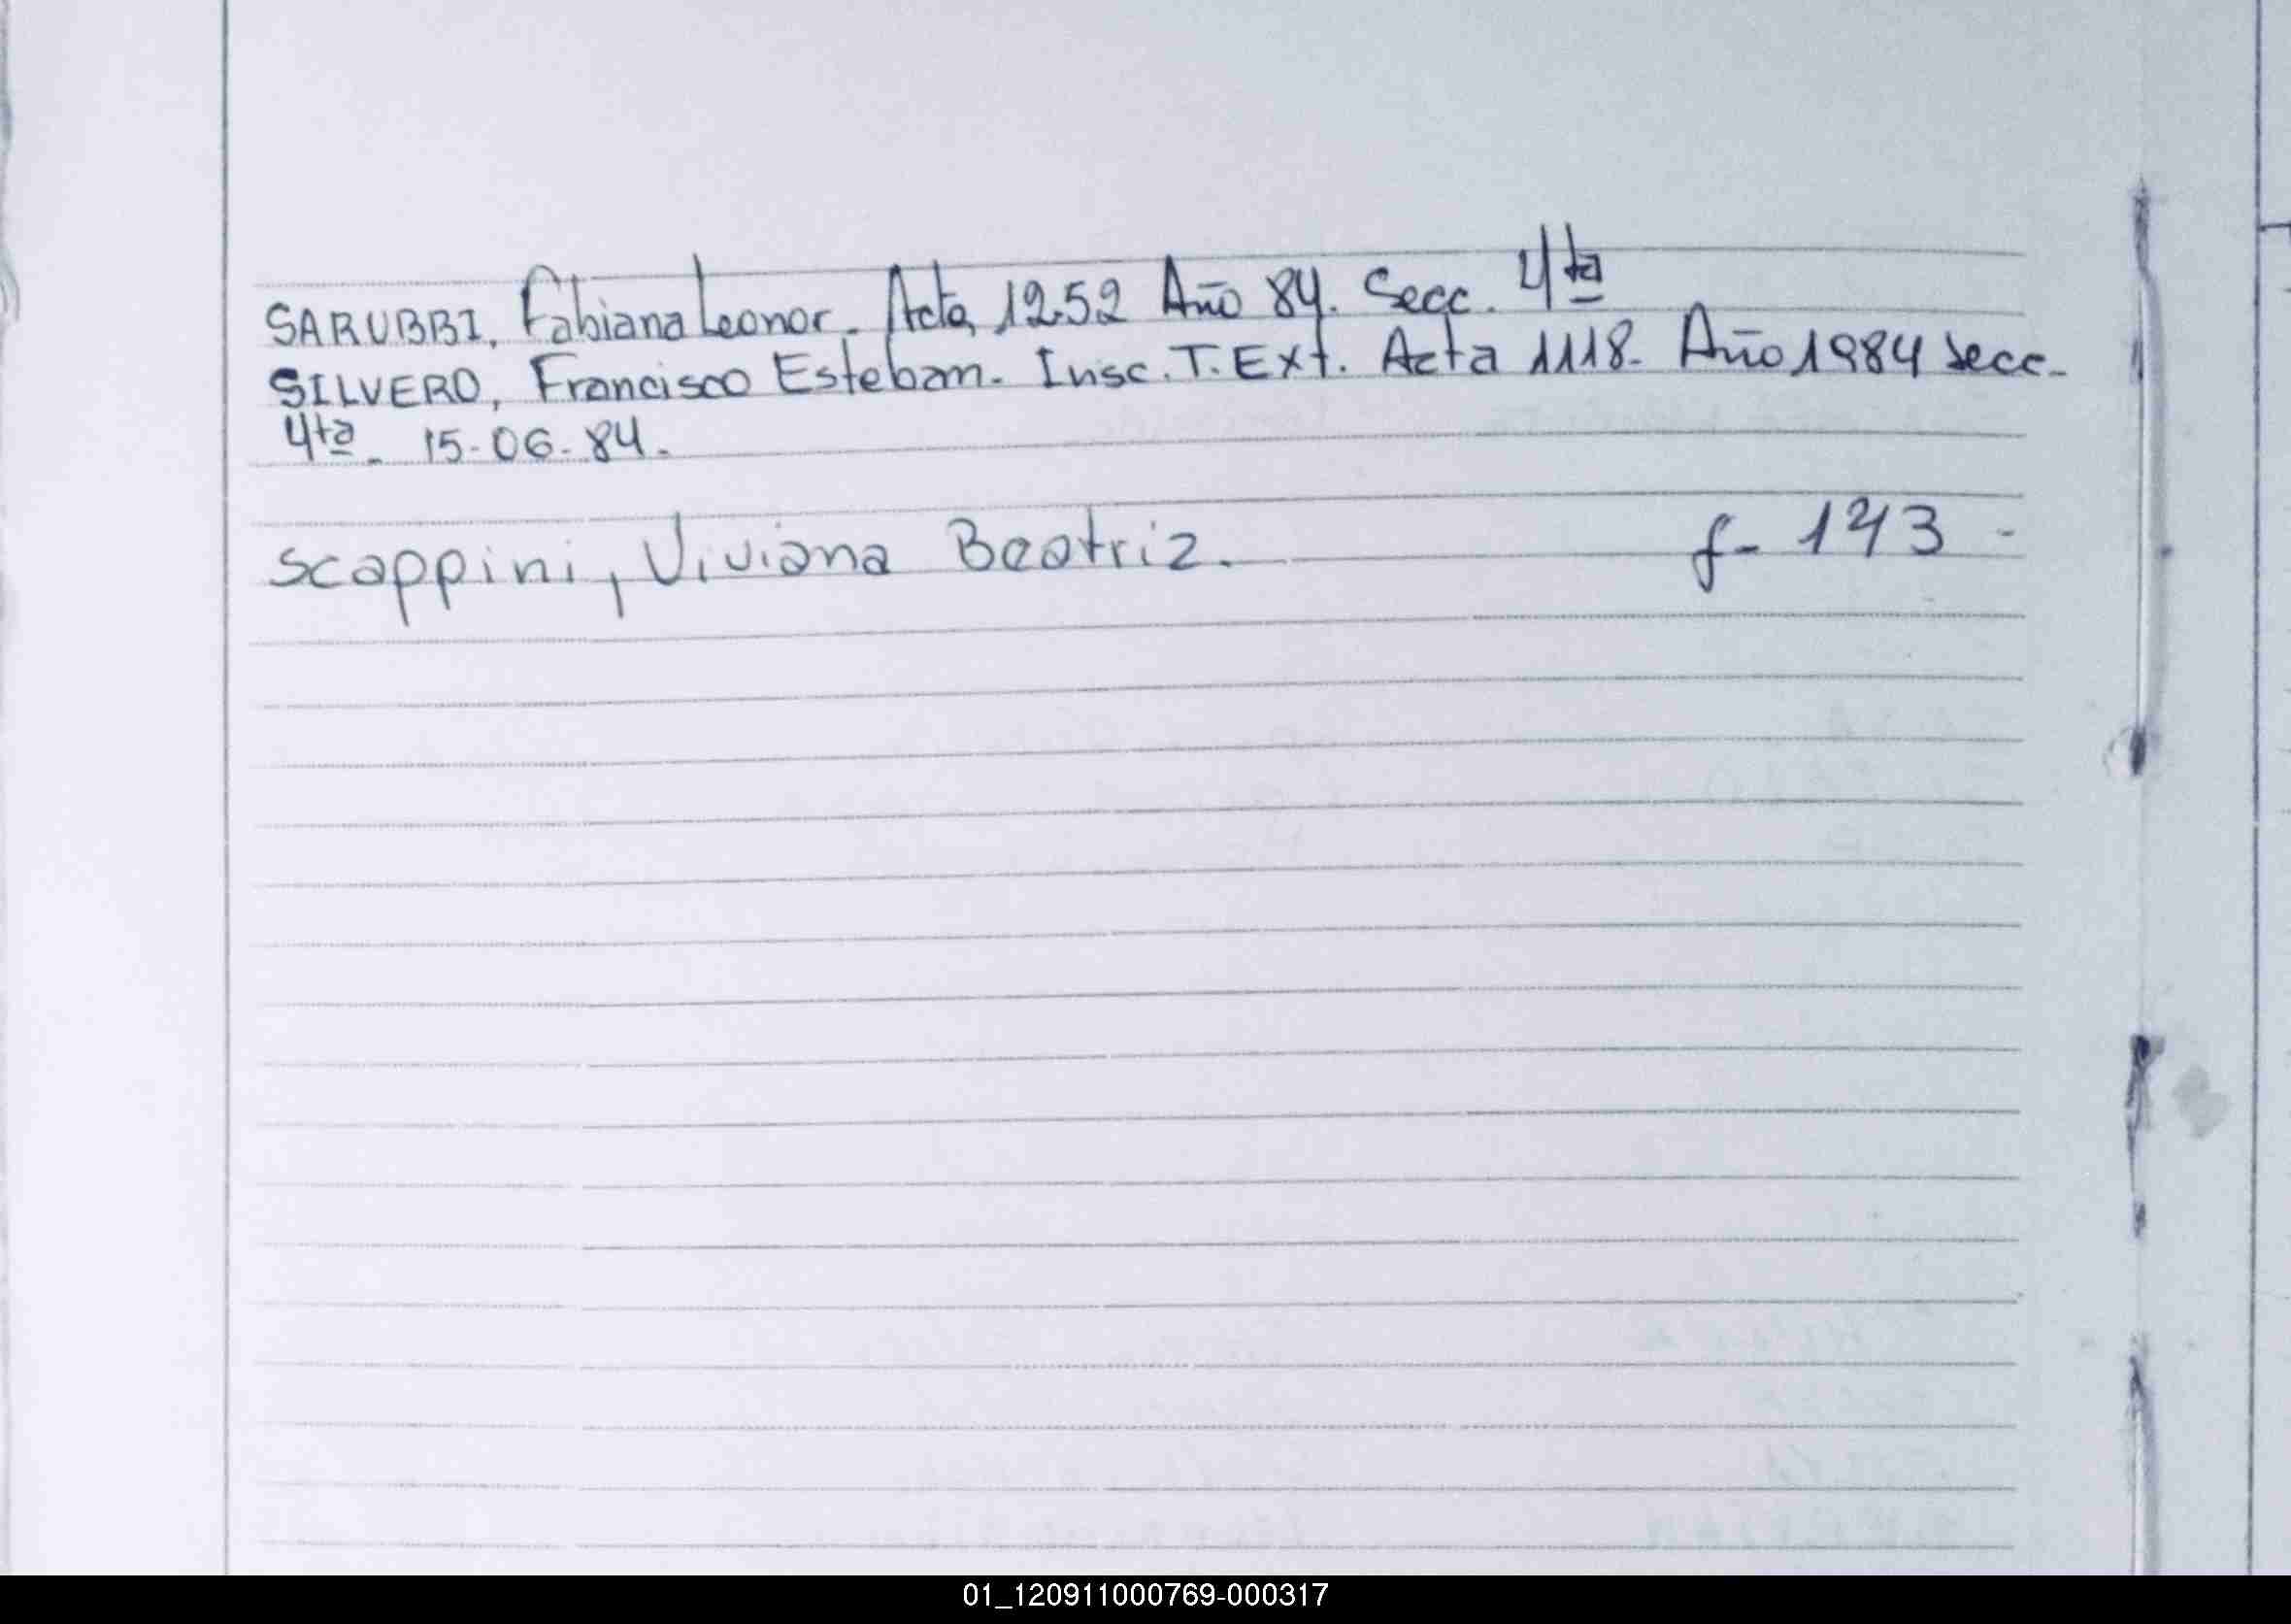 SARUBBI, Fabiana Leonor. Acta 1252 Año 84. Secc. 4ta
SILVERO, Francisco Esteban. Insc. T. Ext. Acta 1118. Año 1984 Secc.
4ta. 15-06-84.
Scappini, Viviana Beatriz. f- 143 -
01_120911000769-000317